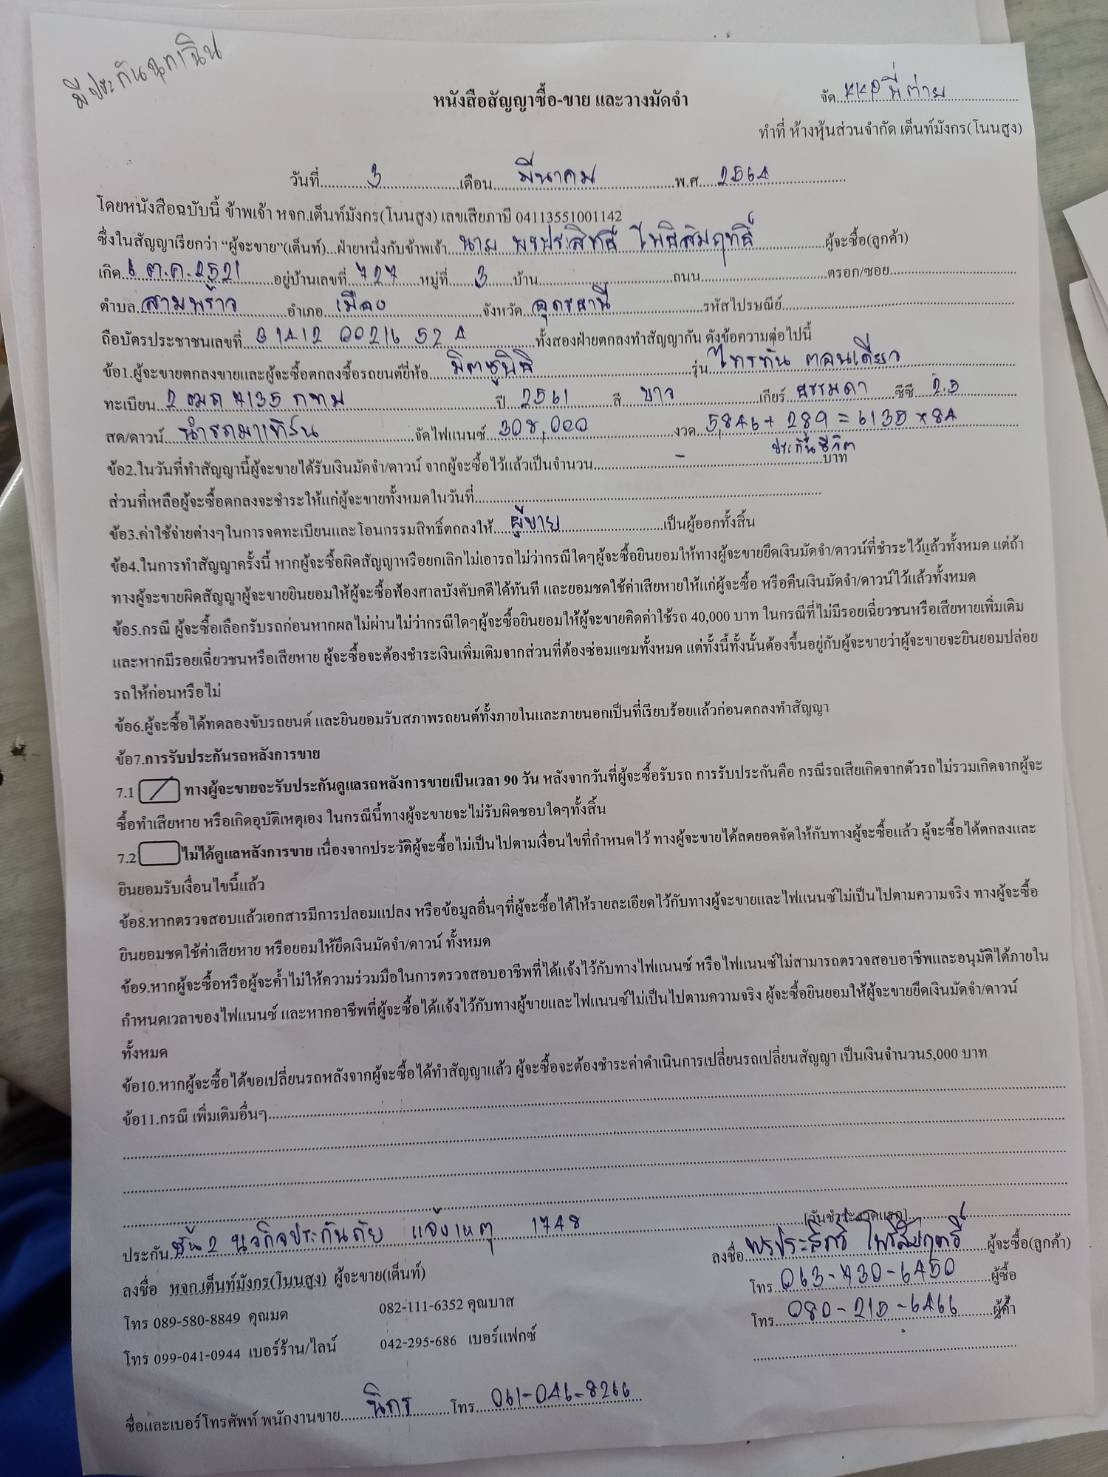 มีประกันฉุกเฉิน
หนังสือสัญญาซื้อ-ขาย และวางมัดจำ
จัด KKP พี่ต่าย
ทำที่ ห้างหุ้นส่วนจำกัด เต็นท์มังกร(โนนสูง)
วันที่ 3 เดือน มีนาคม พ.ศ. 2564
โดยหนังสือฉบับนี้ ข้าพเจ้า หจก.เต็นท์มังกร(โนนสูง) เลขเสียภาษี 04113551001142
ซึ่งในสัญญาเรียกว่า “ผู้จะขาย”(เต็นท์)...ฝ่ายหนึ่งกับข้าพเจ้า นาย พรประสิทธิ์ โพธิ์สัมฤทธิ์ ผู้จะซื้อ(ลูกค้า)
เกิด 6 ต.ค. 2521 อยู่บ้านเลขที่ 727 หมู่ที่ 3 บ้าน ถนน ตรอก/ซอย
ตำบล สามพร้าว อำเภอ เมือง จังหวัด อุดรธานี รหัสไปรษณีย์
ถือบัตรประชาชนเลขที่ 3 1412 00216 52 4 ทั้งสองฝ่ายตกลงทำสัญญากัน ดังข้อความต่อไปนี้
ข้อ1.ผู้จะขายตกลงขายและผู้จะซื้อตกลงซื้อรถยนต์ยี่ห้อ มิตซูบิชิ รุ่น ไทรทัน ตอนเดียว
ทะเบียน 2 ฒฤ 7135 กทม ปี 2561 สี ขาว เกียร์ ธรรมดา ซีซี 2.5
สด/ดาวน์ นำรถมาเทิร์น จัดไฟแนนซ์ 308,000 งวด 5,846 + 289 = 6135 × 84
ประกันชีวิต
ข้อ2.ในวันที่ทำสัญญานี้ผู้จะขายได้รับเงินมัดจำ/ดาวน์ จากผู้จะซื้อไว้แล้วเป็นจำนวน - บาท
ส่วนที่เหลือผู้จะซื้อตกลงจะชำระให้แก่ผู้จะขายทั้งหมดในวันที่
ข้อ3.ค่าใช้จ่ายต่างๆในการจดทะเบียนและโอนกรรมสิทธิ์ตกลงให้ ผู้ขาย เป็นผู้ออกทั้งสิ้น
ข้อ4.ในการทำสัญญาครั้งนี้ หากผู้จะซื้อผิดสัญญาหรือยกเลิกไม่เอารถไม่ว่ากรณีใดๆผู้จะซื้อยินยอมให้ทางผู้จะขายยึดเงินมัดจำ/ดาวน์ที่ชำระไว้แล้วทั้งหมด แต่ถ้า
ทางผู้จะขายผิดสัญญาผู้จะขายยินยอมให้ผู้จะซื้อฟ้องศาลบังคับคดีได้ทันที และยอมชดใช้ค่าเสียหายให้แก่ผู้จะซื้อ หรือคืนเงินมัดจำ/ดาวน์ไว้แล้วทั้งหมด
ข้อ5.กรณี ผู้จะซื้อเลือกรับรถก่อนหากผลไม่ผ่านไม่ว่ากรณีใดๆผู้จะซื้อยินยอมให้ผู้จะขายคิดค่าใช้รถ 40,000 บาท ในกรณีที่ไม่มีรอยเฉี่ยวชนหรือเสียหายเพิ่มเติม
และหากมีรอยเฉี่ยวชนหรือเสียหาย ผู้จะซื้อจะต้องชำระเงินเพิ่มเติมจากส่วนที่ต้องซ่อมแซมทั้งหมด แต่ทั้งนี้ทั้งนั้นต้องขึ้นอยู่กับผู้จะขายว่าผู้จะขายจะยินยอมปล่อย
รถให้ก่อนหรือไม่
ข้อ6.ผู้จะซื้อได้ทดลองขับรถยนต์ และยินยอมรับสภาพรถยนต์ทั้งภายในและภายนอกเป็นที่เรียบร้อยแล้วก่อนตกลงทำสัญญา
ข้อ7.การรับประกันรถหลังการขาย
7.1 / ทางผู้จะขายจะรับประกันดูแลรถหลังการขายเป็นเวลา 90 วัน หลังจากวันที่ผู้จะซื้อรับรถ การรับประกันคือ กรณีรถเสียเกิดจากตัวรถไม่รวมเกิดจากผู้จะ
ซื้อทำเสียหาย หรือเกิดอุบัติเหตุเอง ในกรณีนี้ทางผู้จะขายจะไม่รับผิดชอบใดๆทั้งสิ้น
7.2 ไม่ได้ดูแลหลังการขาย เนื่องจากประวัติผู้จะซื้อไม่เป็นไปตามเงื่อนไขที่กำหนดไว้ ทางผู้จะขายได้ลดยอดจัดให้กับทางผู้จะซื้อแล้ว ผู้จะซื้อได้ตกลงและ
ยินยอมรับเงื่อนไขนี้แล้ว
ข้อ8.หากตรวจสอบแล้วเอกสารมีการปลอมแปลง หรือข้อมูลอื่นๆที่ผู้จะซื้อได้ให้รายละเอียดไว้กับทางผู้จะขายและไฟแนนซ์ไม่เป็นไปตามความจริง ทางผู้จะซื้อ
ยินยอมชดใช้ค่าเสียหาย หรือยอมให้ยึดเงินมัดจำ/ดาวน์ ทั้งหมด
ข้อ9.หากผู้จะซื้อหรือผู้จะค้ำไม่ให้ความร่วมมือในการตรวจสอบอาชีพที่ได้แจ้งไว้กับทางไฟแนนซ์ หรือไฟแนนซ์ไม่สามารถตรวจสอบอาชีพและอนุมัติได้ภายใน
กำหนดเวลาของไฟแนนซ์ และหากอาชีพที่ผู้จะซื้อได้แจ้งไว้กับทางผู้ขายและไฟแนนซ์ไม่เป็นไปตามความจริง ผู้จะซื้อยินยอมให้ผู้จะขายยึดเงินมัดจำ/ดาวน์
ทั้งหมด
ข้อ10.หากผู้จะซื้อได้ขอเปลี่ยนรถหลังจากผู้จะซื้อได้ทำสัญญาแล้ว ผู้จะซื้อจะต้องชำระค่าดำเนินการเปลี่ยนรถเปลี่ยนสัญญา เป็นเงินจำนวน5,000 บาท
ข้อ11.กรณี เพิ่มเติมอื่นๆ
ประกัน ชั้น 2 นวกิจประกันภัย แจ้งเหตุ 1748
ลงชื่อ พรประสิทธิ์ โพธิ์สัมฤทธิ์ ผู้จะซื้อ(ลูกค้า)
ลงชื่อ หจก.เต็นท์มังกร(โนนสูง) ผู้จะขาย(เต็นท์)
โทร 063-430-6450 ผู้ซื้อ
โทร 089-580-8849 คุณมด 082-111-6352 คุณบาส
โทร 080-215-6466 ผู้ค้ำ
โทร 099-041-0944 เบอร์ร้าน/ไลน์ 042-295-686 เบอร์แฟกซ์
ชื่อและเบอร์โทรศัพท์ พนักงานขาย นิกร โทร 061-046-8266